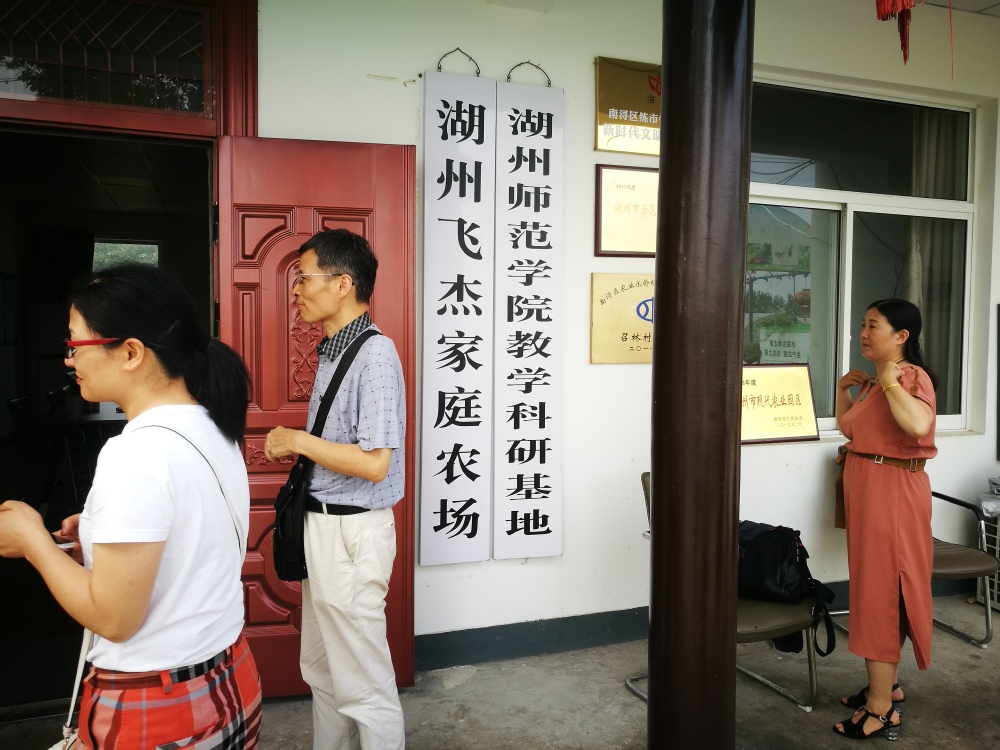 湖州飞杰家庭农场
湖州师范学院教学科研基地
南浔区练市
新时代文明
2017年度
湖州市示范
南浔区农业水价
召林村
二〇一
年度
州市现代农业园区